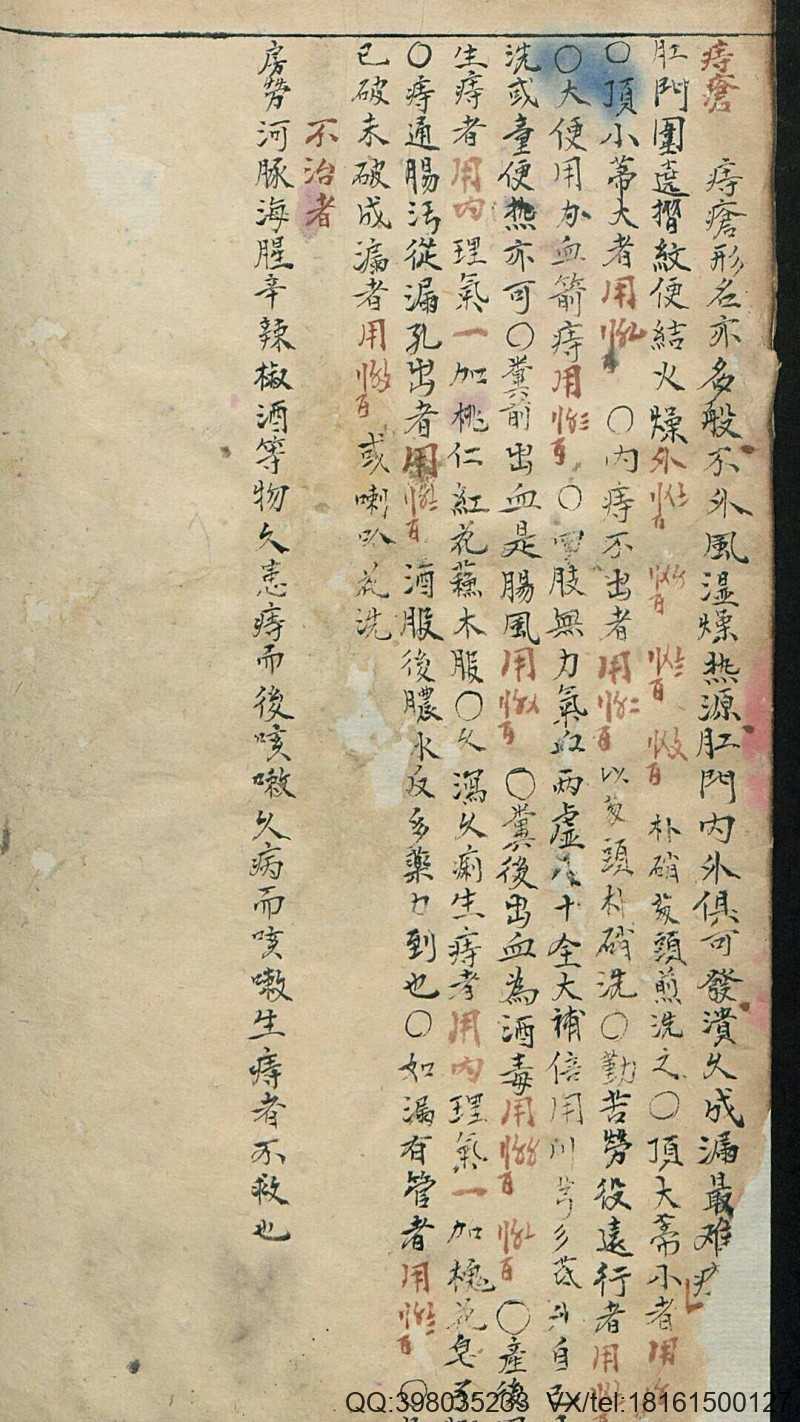 痔瘡 痔瘡形名亦多般不外風湿燥热源肛門內外俱可發潰久成漏最难
肛門圍遶摺紋便結火燥外 朴硝葱頭煎洗之〇頂大蒂小者用
〇頂小蒂大者用 〇內痔不出者用 以葱頭朴硝洗〇勤苦勞役遠行者用
〇大便用力血箭痔用 〇四肢無力氣血兩虛 十全大補倍用川芎
洗或童便热亦可〇糞前出血是腸風用 〇糞後出血為酒毒用 〇產後
生痔者用內理氣一加桃仁紅花蘓木服〇久瀉久痢生痔者用內理氣一加槐花皂子
〇痔通腸汚從漏孔出者用 酒服後膿水反多藥力到也〇如漏有管者用
已破未破成漏者用 或喇叭花洗
不治者
房勞河豚海腥辛辣椒酒等物久患痔而後咳嗽久病而咳嗽生痔者不救也
QQ:398035203 VX/tel:18161500127